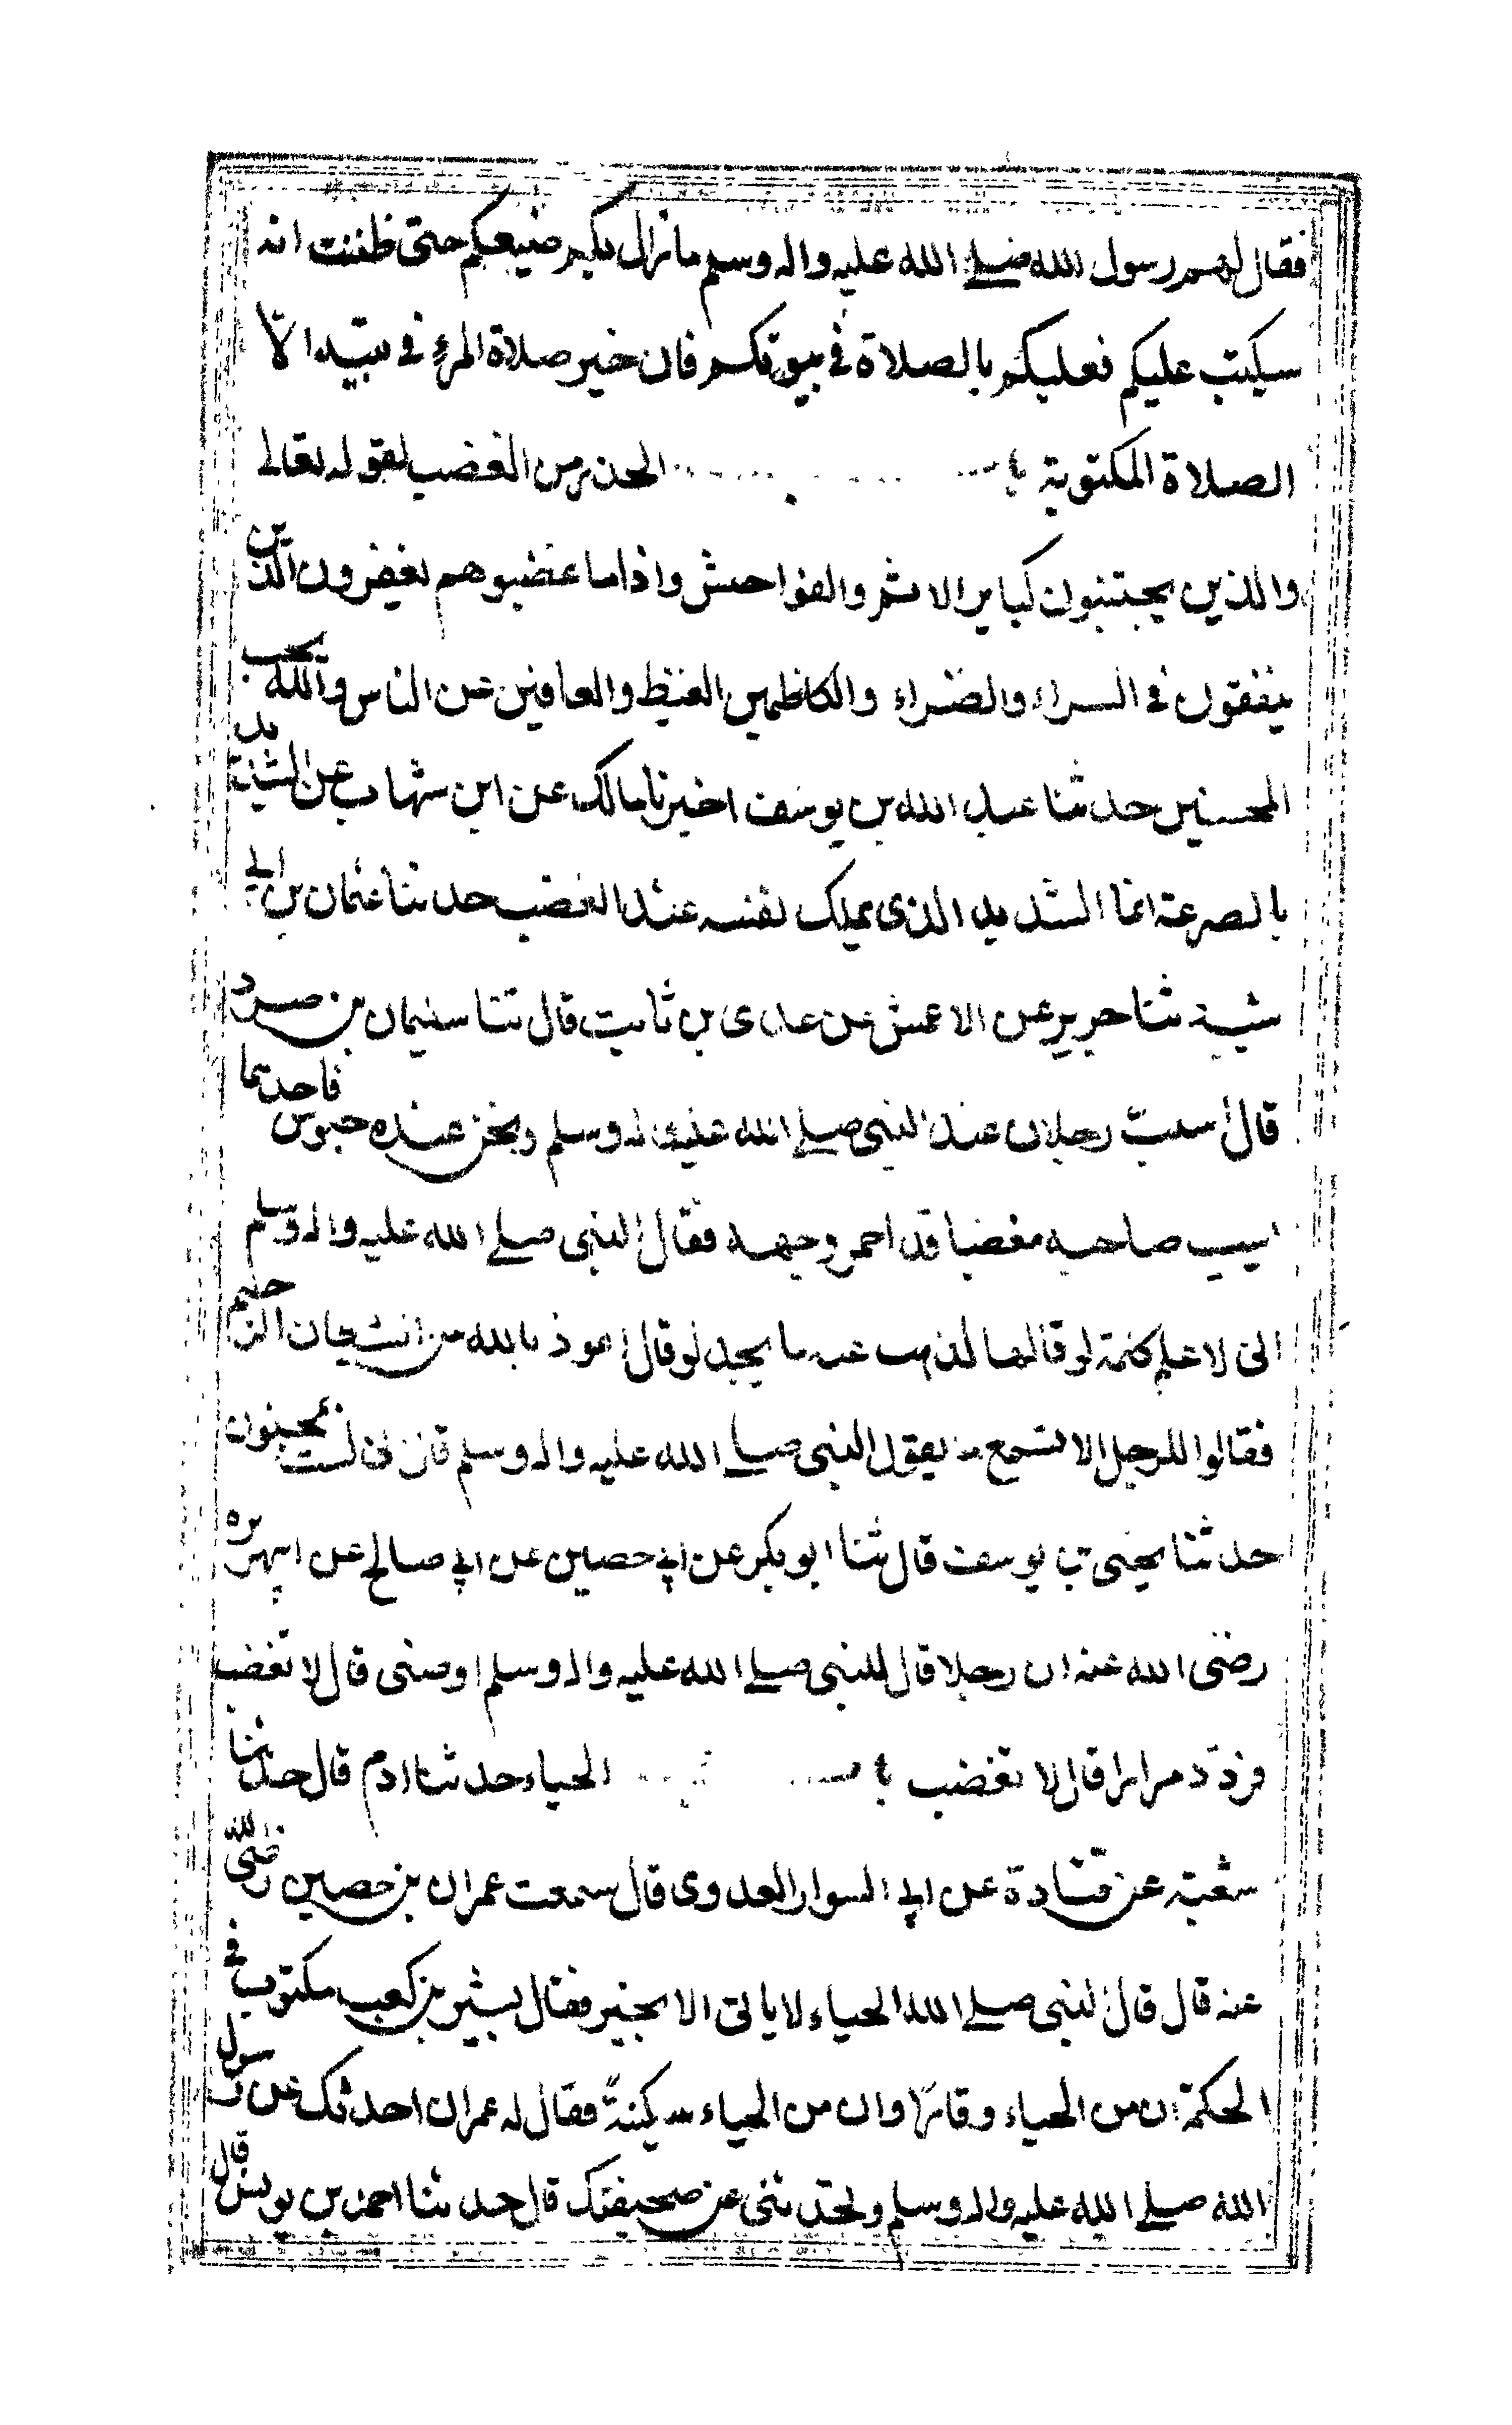 فقال لهم رسول الله صلى الله عليه واله وسلم ما زال بكم صنيعكم حتى ظننت انه
سيكتب عليكم فعليكم بالصلاة في بيوتكم فان خير صلاة المرء في بيته الا
الصلاة المكتوبة باب الحذر من الغضب لقوله تعالى
والذين يجتنبون كباير الاثم والفواحش واذا ما غضبوا هم يغفرون الذين
ينفقون في السراء والضراء والكاظمين الغيظ والعافين عن الناس والله يحب
المحسنين حدثنا عبد الله بن يوسف اخبرنا مالك عن ابن شهاب عن
بالصرعة انما الشديد الذي يملك نفسه عند الغضب حدثنا عثمان بن ابي
شيبة ثنا جرير عن الاعمش عن عدي بن ثابت قال ثنا سليمان بن صرد
قال استب رجلان عند النبي صلى الله عليه واله وسلم ونحن عنده جلوس فاحدهما
يسب صاحبه مغضبا قد احمر وجهه فقال النبي صلى الله عليه واله وسلم
اني لاعلم كلمة لو قالها لذهب عنه ما يجد لو قال اعوذ بالله من الشيطان الرجيم
فقالوا للرجل الا تسمع ما يقول النبي صلى الله عليه واله وسلم قال اني لست بمجنون
حدثنا يحيى بن يوسف قال ثنا ابو بكر عن ابي حصين عن ابي صالح عن ابي هريره
رضي الله عنه ان رجلا قال للنبي صلى الله عليه واله وسلم اوصني قال لا تغضب
فردّد مرارا قال لا تغضب باب الحياء حدثنا ادم قال حدثنا
شعبة عن قتادة عن ابي السوار العدوي قال سمعت عمران بن حصين رضي الله
عنه قال قال النبي صلى الله الحياء لا ياتي الا بخير فقال بشير بن كعب مكتوب في
الحكمة ان من الحياء وقارا وان من الحياء سكينة فقال له عمران احدثك عن رسول
الله صلى الله عليه واله وسلم وتحدثني عن صحيفتك قال حدثنا احمد بن يونس قال